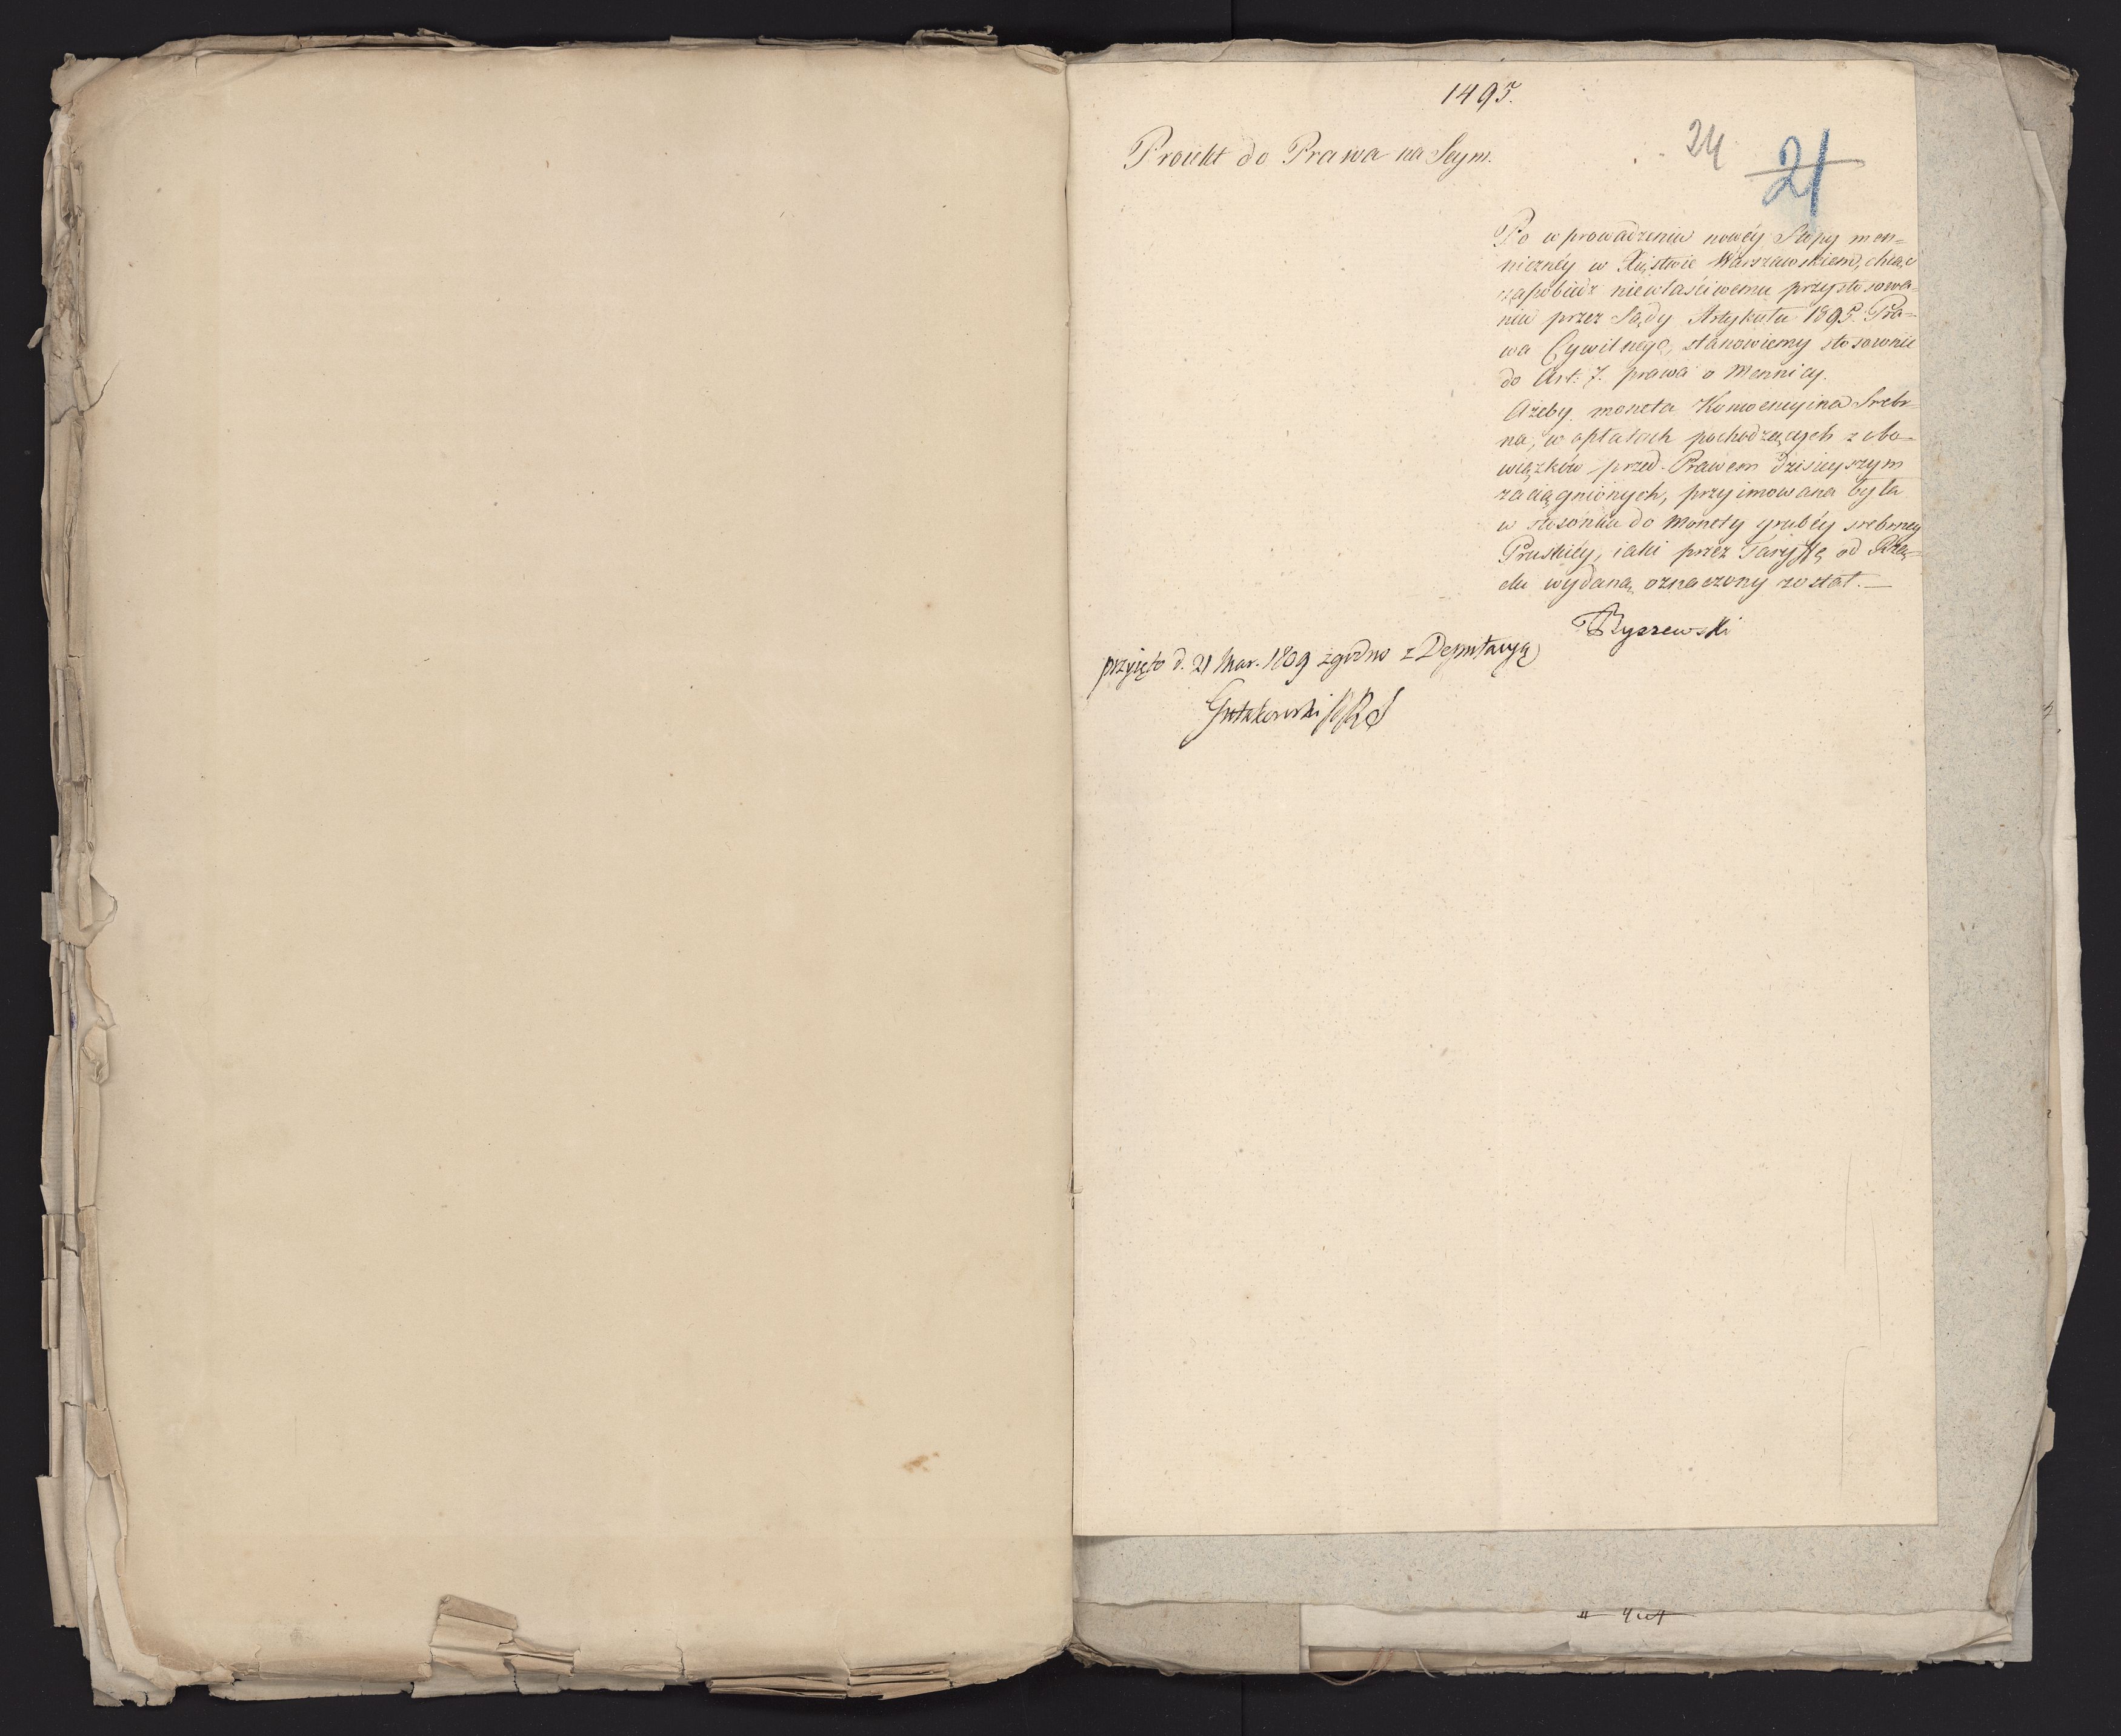 1495.
Proiekt do Prawa na Seym.
24
21
Po wprowadzeniu nowéy Stopy men=
niczney w Xięstwie Warszawskiem, chcąc
zapobiedz niewłaściwemu przystosowa=
niu przez Sądy Artykułu 1895. Pra=
wa Cywilnego, stanowiemy stosownie
do Art: 7. prawa o Mennicy.
Ażeby moneta Konwencyina Srebr=
na, w opłatach pochodzących z obo=
wiązków przed Prawem dzisieyszym
zaciągnionych, przyimowana była
w stosunku do Monety grubéy srebrney
Pruskiéy, iaki przez Taryffę od Rzą=
du wydaną oznaczony został. —
Ryszewski
przyięto d. 21 Mar. 1809 zgodno z Deputacyą
Gutakowski PRS